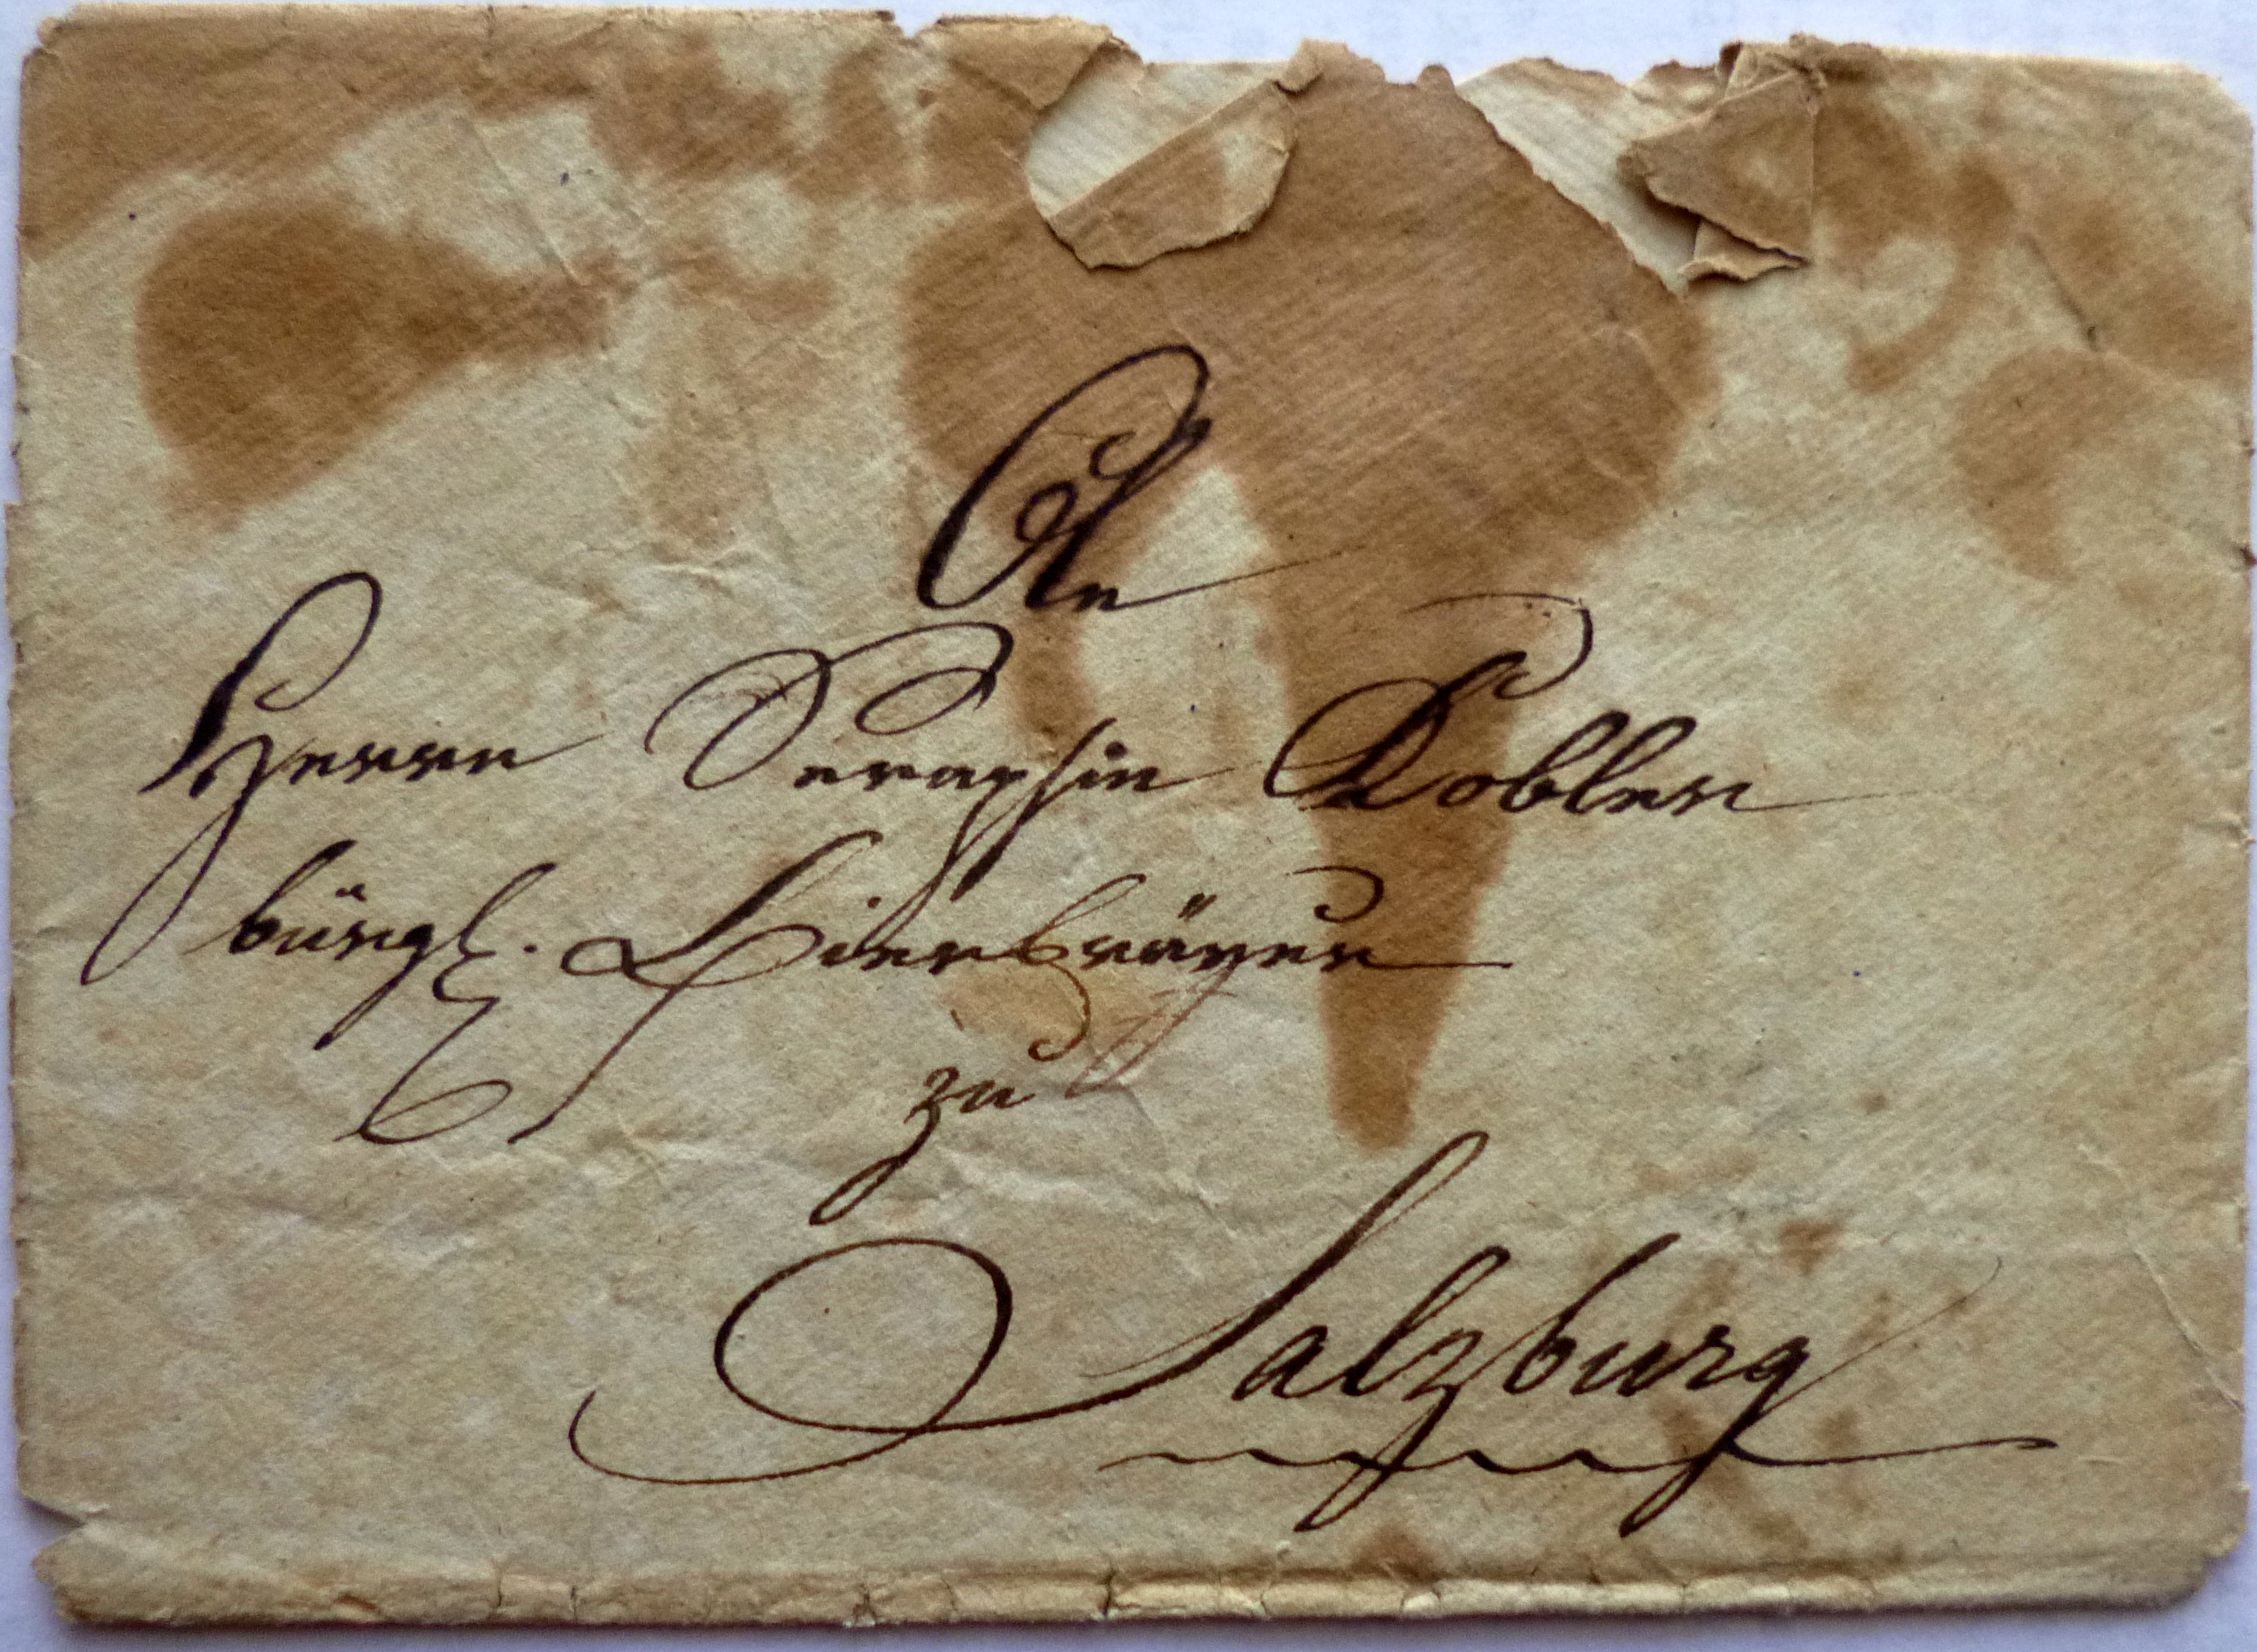 An
Herrn Seraphin Dobler
bürgl. Bierbräyer
zu
Salzburg